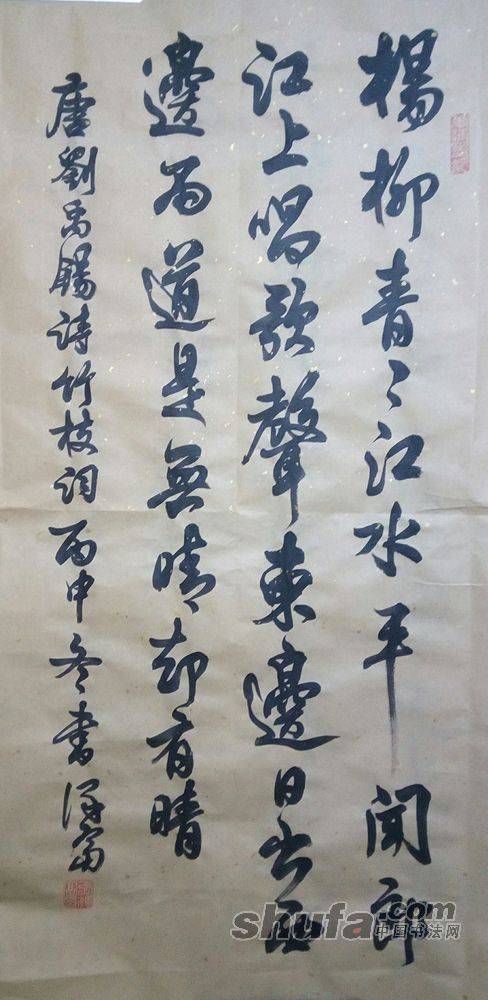 楊柳青〻江水平聞郎
江上唱歌聲東邊日出西
邊雨道是無晴却有晴
唐劉禹錫詩竹枝詞丙申冬書
shufa.com
中国书法网